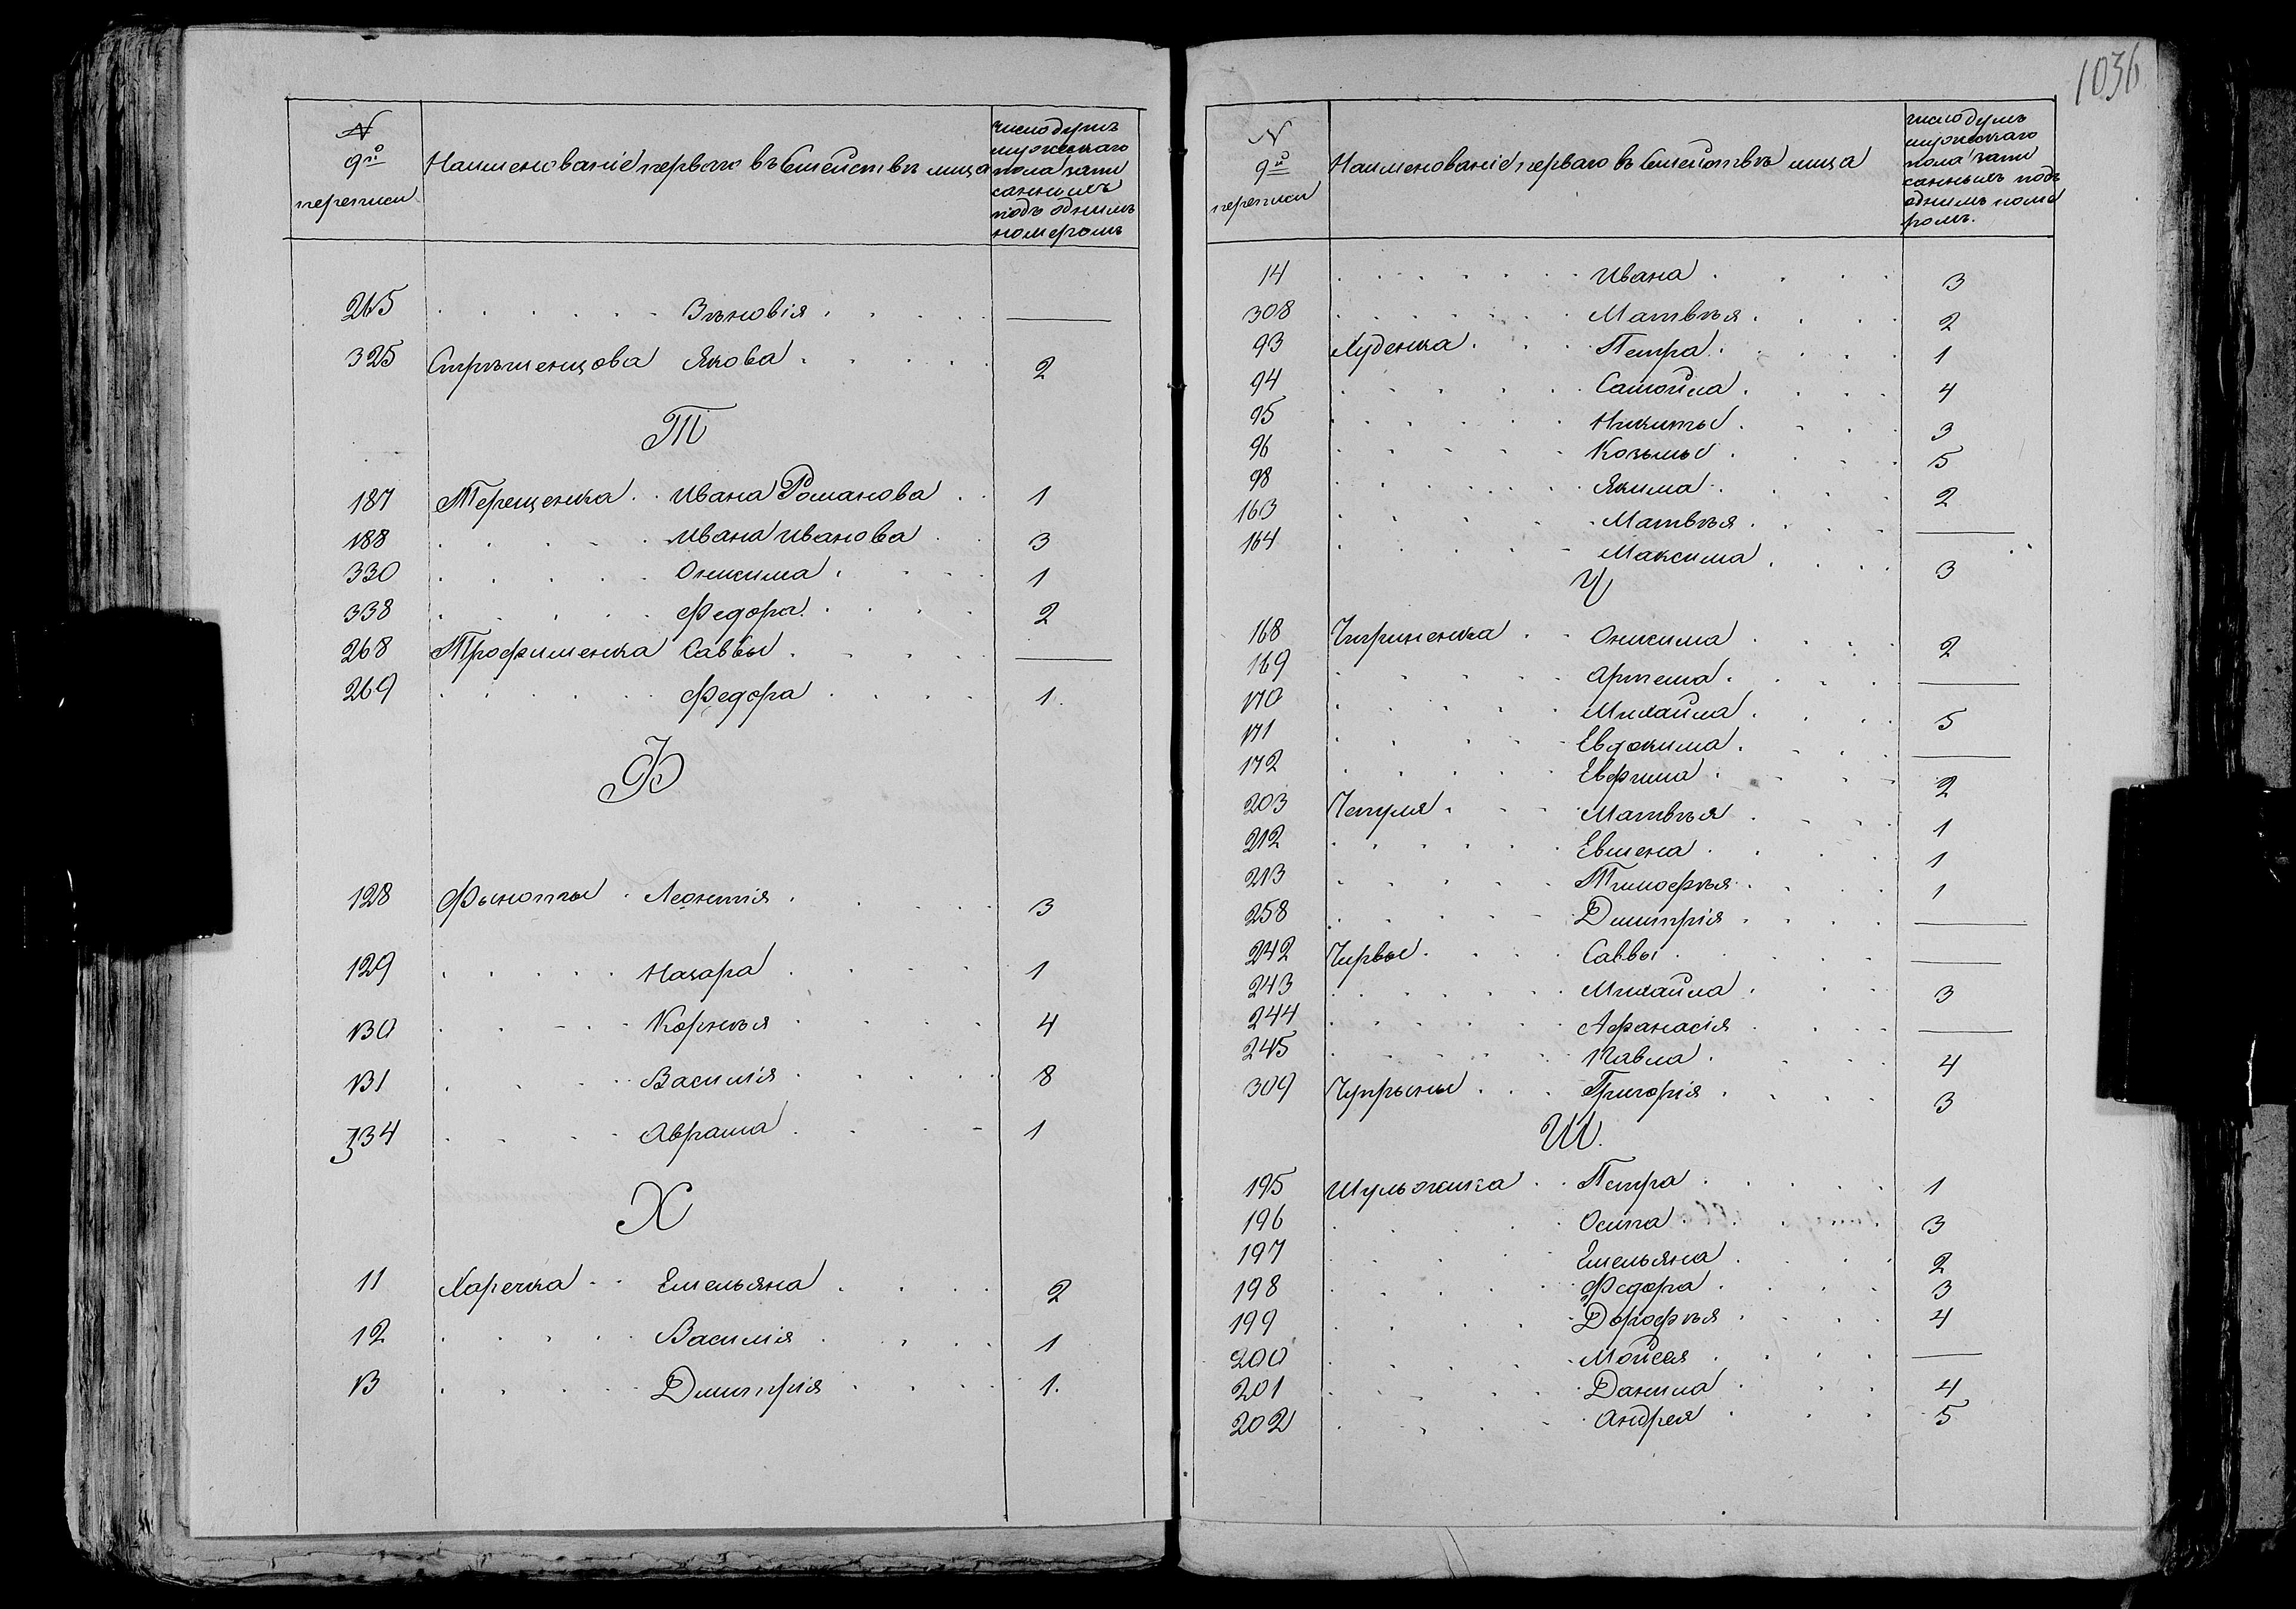 1036
№
9й
переписи
Наименованіе перваго въ Семействѣ лица
число душъ
мужескаго
пола запи
санныхъ
подъ однимъ
номеромъ
245 Зѣновія —
325 Стрѣменцова Якова 2
Т
187 Терещенка Ивана Романова 1
188 Ивана Иванова 3
330 Онисима 1
338 Федора 2
268 Трофименка Саввы —
269 Федора 1.
Ф
128 Фыноты Леонтія 3
129 Назара 1
130 Корнѣя 4
131 Василія 8
334 Аврама 1
Х
11 Харечка Емельяна 2
12 Василія 1
13 Дмитрія 1.
№
9й
переписи
Наименованіе перваго въ Семействѣ лица
число душъ
мужескаго
пола запи
санныхъ подъ
однимъ номе
ромъ.
14 Ивана 3
308 Матвѣя 2
93 Худенка Петра 1
94 Самойла 4
95 Никиты 3
96 Козьмы 5
98 Якима 2
163 Матвѣя —
164 Максима 3
Ч
168 Чириненка Онисима 2
169 Артема —
170 Михайла 5
171 Евдокима —
172 Евфима 2
203 Чепуля Матвѣя 1
212 Евмена 1
213 Тимофѣя 1
258 Дмитрія —
242 Чирвы Саввы —
243 Михайла 3
244 Афанасія —
245 Павла 4
309 Чупрыны Григорія 3
Ш.
195 Шульжика Петра 1
196 Осипа 3
197 Емельяна 2
198 Федора 3
199 Дорофѣя 4
200 Мойсея —
201 Данила 4
202 Андрея 5